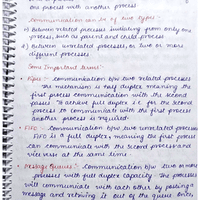 one process with another process
Communication can be of two types
1) Between related processes initiating from only one
process, such as parent and child process
2) Between unrelated processes, or two or more
different processes
Some Important Terms:
• Pipes - communication b/w two related processes
The mechanism is half duplex meaning the
first process communication with the second
process. To achieve full duplex i.e. for the second
process to communicate with the first process
another process is required.
• FIFO - communication b/w two unrelated processes
FIFO is a full duplex, meaning the first process
can communicate with the second process and
vice versa at the same time
• Message Queues - communication b/w two or more
processes with full duplex capacity. The processes
will communicate with each other by posting a
message and retrieving it out of the queue once,